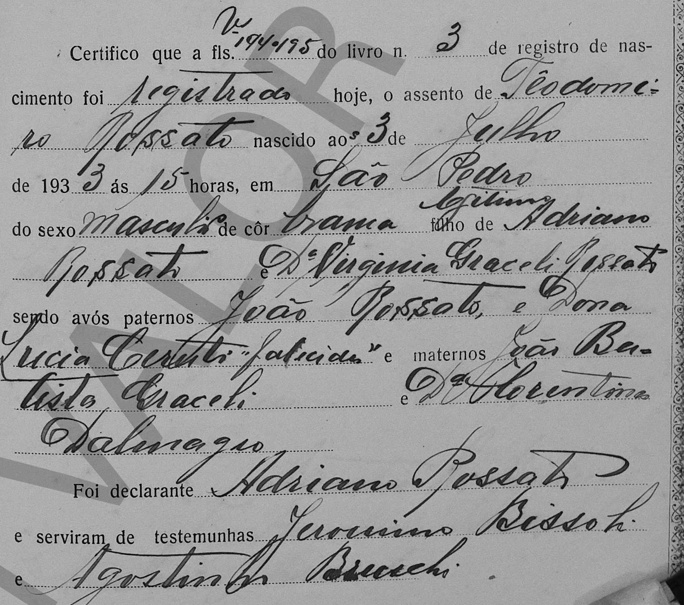 Certifico que a fls. V-194-195 do livro n. 3 de registro de nas-
cimento foi registrado hoje, o assento de Têodomi-
ro Rossato nascido aos 3 de Julho
de 193 3 ás 15 horas, em São Pedro
do sexo masculino de côr branca filho legitimo de Adriano
Rossato e Dª Virginia Graceli Rossato
sendo avós paternos João Rossato, e Dona
Lucia Cerutti "falecidos" e maternos João Ba-
tista Graceli e Dª Florentina
Dalmagro
Foi declarante Adriano Rossato
e serviram de testemunhas Jeronimo Bissoli
e Agostinho Bruschi
VALOR